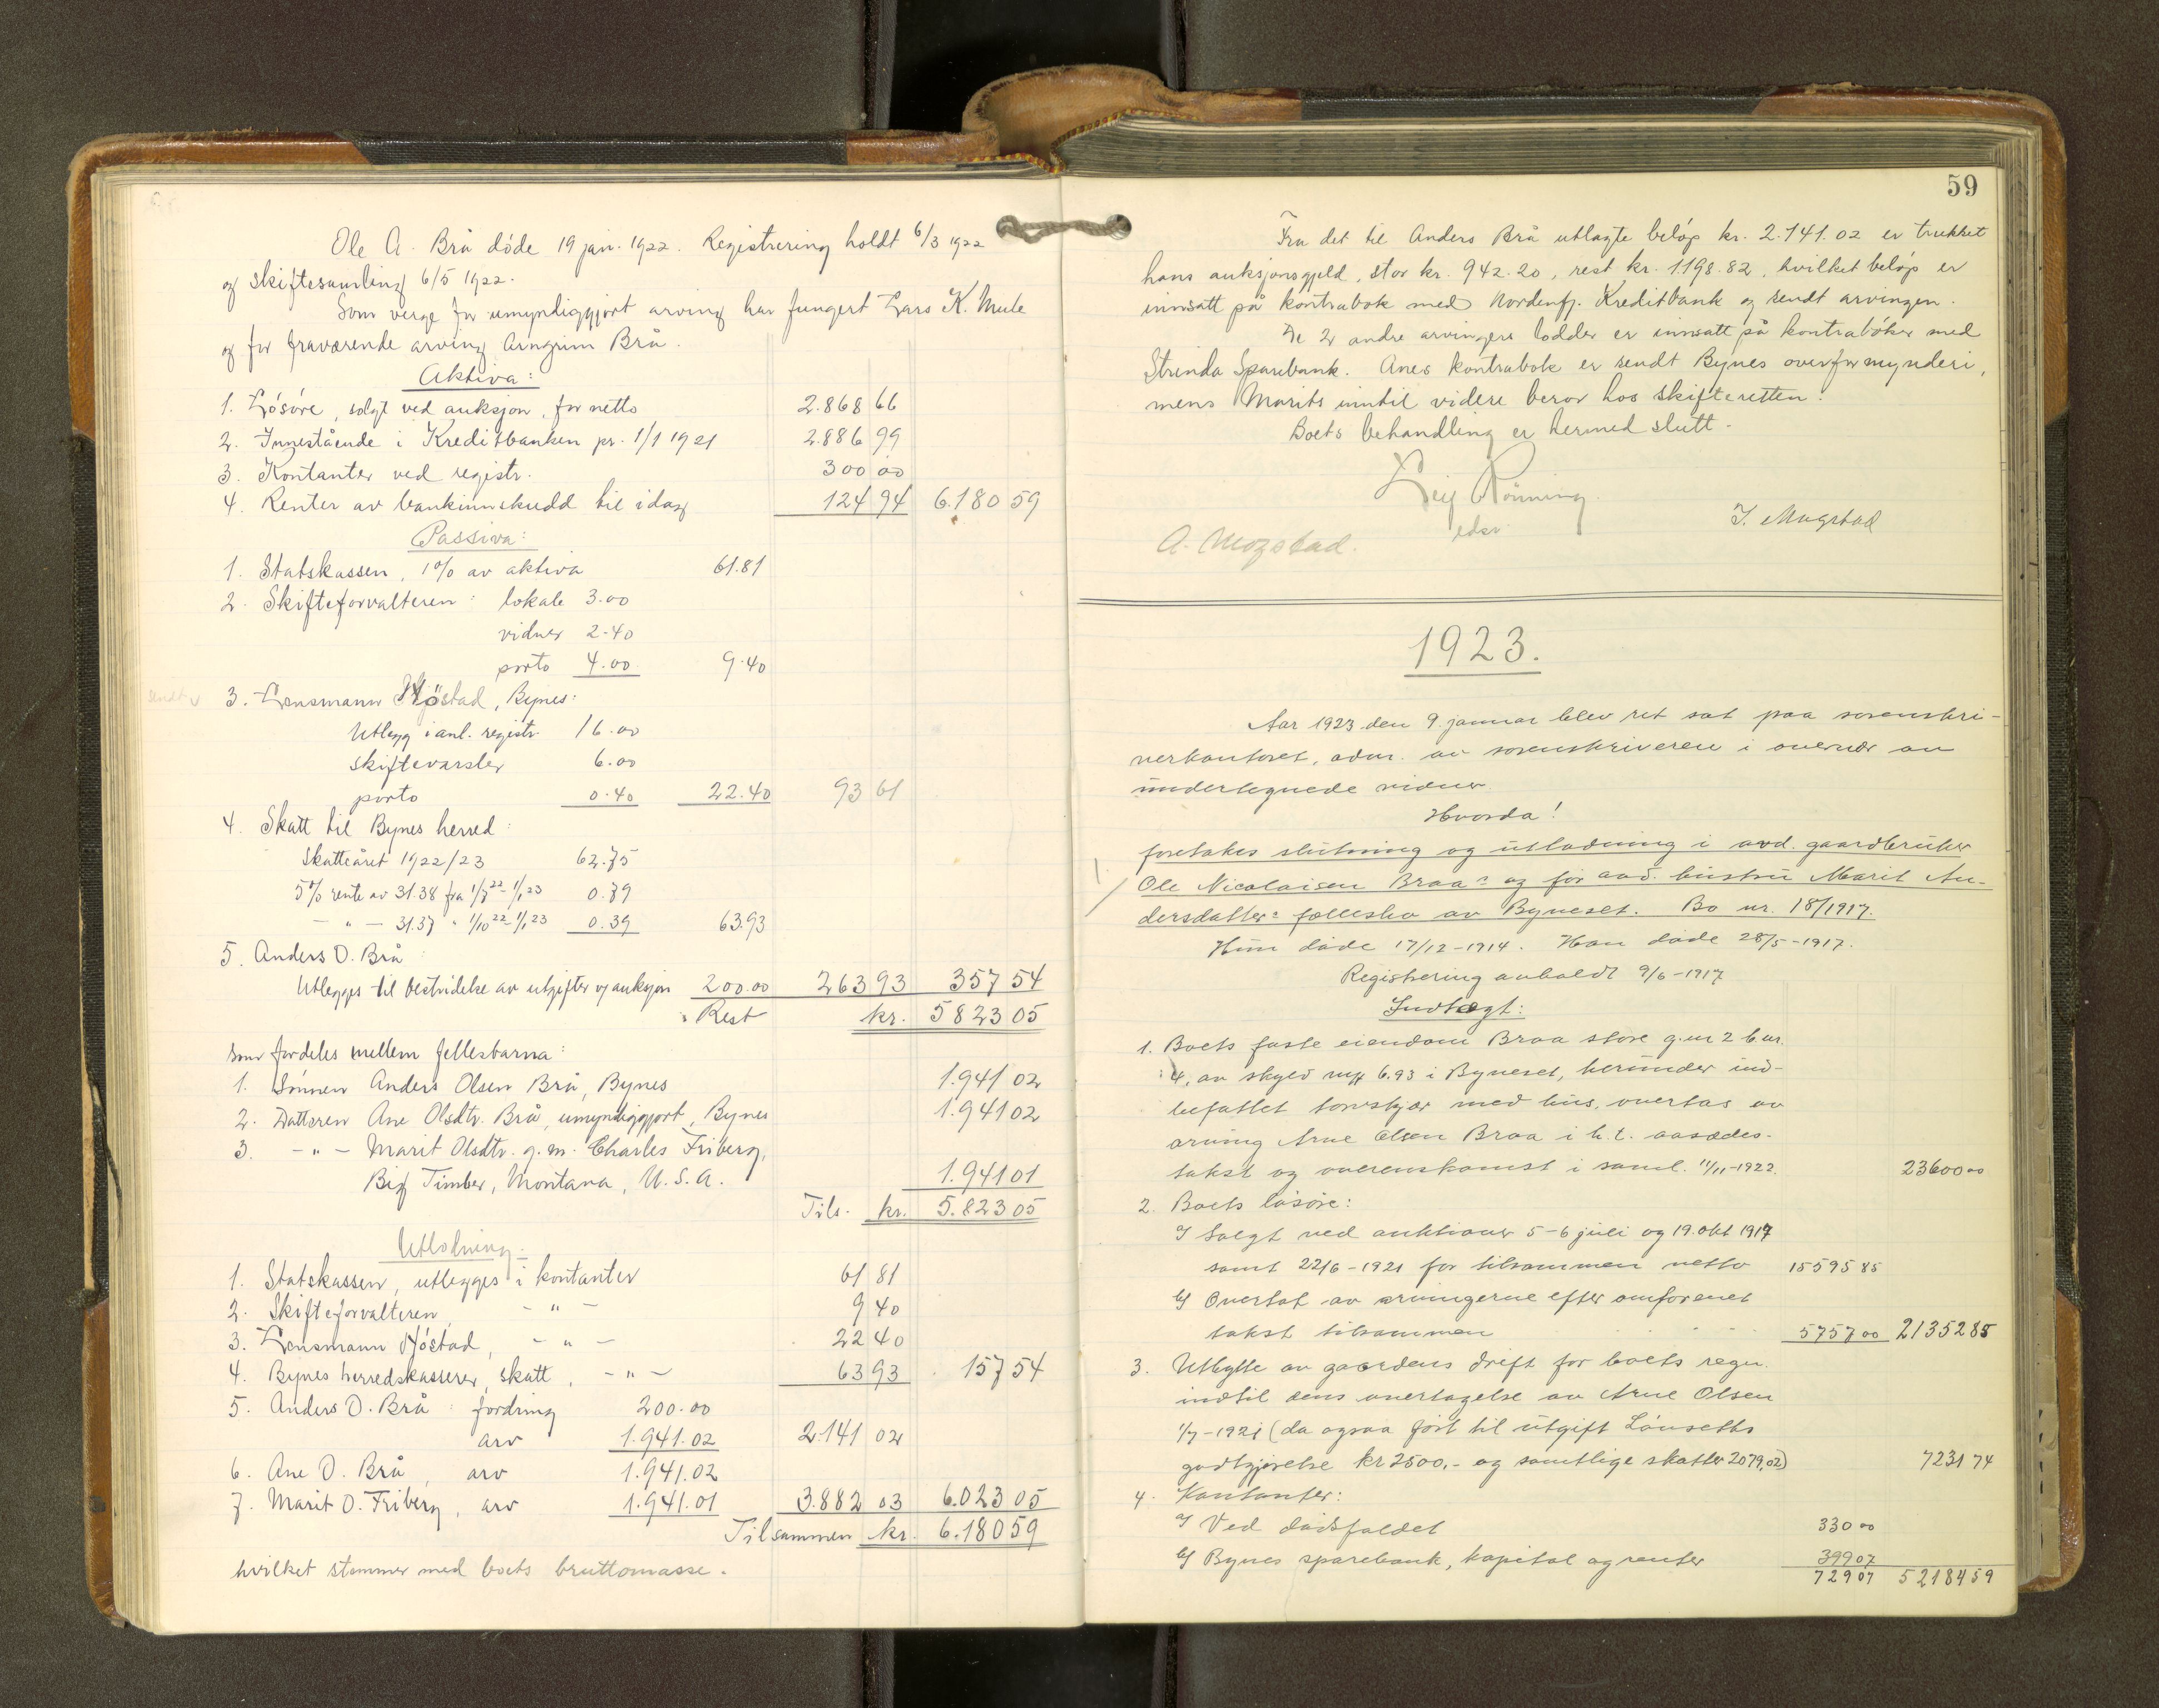 Ole A. Brå döde 19 jan. 1922. Registrering holdt 6/3 1922
og skiftesamling 6/5 1922.
Som verge for umyndiggjort arving har fungert Lars K. Mule
og for fraværende arving Arngrim Brå.
Aktiva:
1. Lösöre, solgt ved auksjon, for netto 2.868 66
2. Innestående i Kreditbanken pr. 1/1 1921 2.886 99
3. Kontanter ved registr. 300 00
4. Renter av bankinnskudd til idag 124 94 6.180 59
Passiva:
1. Statskassen, 1% av aktiva 61.81
2. Skifteforvalteren: lokale 3.00
vidner 2.40
porto 4.00 9.40
sendt v 3. Lensmann Höstad, Bynes:
Utlegg i anl. registr. 16.00
skiftevarsler 6.00
porto 0.40 22.40 93 61
4. Skatt til Bynes herred:
Skatteåret 1922/23 62.75
5% rente av 31.38 fra 1/7 22 - 1/1 23 0.79
- " - 31.37 " 1/10 22 - 1/1 23 0.39 63.93
5. Anders O. Brå:
Utlegges til bestridelse av utgifter og auksjon 200.00 263 93 357 54
Rest kr. 5823 05
som fordeles mellem fellesbarna:
1. Sönnen Anders Olsen Brå, Bynes 1.941 02
2. Datteren Ane Olsdtr. Brå, umyndiggjort, Bynes 1.941 02
3. - " - Marit Olsdtr. g. m. Charles Friberg,
Big Timber, Montana, U.S.A. 1.941 01
Tils. kr. 5.823 05
Utlodning.
1. Statskassen, utlegges i kontanter 61 81
2. Skifteforvalteren, - " - 9 40
3. Lensmann Höstad, - " - 22 40
4. Bynes herredskasserer, skatt, - " - 63 93 157 54
5. Anders O. Brå: fordring 200.00
arv 1.941.02 2.141 02
6. Ane O. Brå, arv 1.941.02
7. Marit O. Friberg, arv 1.941.01 3.882 03 6.023 05
Tilsammen kr. 6.180 59
hvilket stemmer med boets bruttomasse.
59
Fra det til Anders Brå utlagte beløp kr. 2.141.02 er trukket
hans auksjonsgjeld, stor kr. 942.20, rest kr. 1198.82, hvilket beløp er
innsatt på kontrabok med Nordenfj. Kreditbank og sendt arvingen.
De 2 andre arvingers lodder er innsatt på kontrabøker med
Strinda Sparebank. Anes kontrabok er sendt Bynes overformynderi,
mens Marits inntil videre beror hos skifteretten.
Boets behandling er hermed slutt.
Leif Rönning
edsv.
A. Mogstad. J. Mogstad
1923.
Aar 1923 den 9. januar blev ret sat paa sorenskri-
verkontoret, adm. av sorenskriveren i overvær av
undertegnede vidner
Hvorda!
foretokes slutning og utlodning i avd. gaardbruker
Ole Nicolaisen Braa's og før avd. hustru Marit An-
dersdatter's fællesbo av Byneset. Bo nr. 18/1917.
Hun døde 17/12-1914. Han døde 28/5-1917.
Registrering avholdt 9/6-1917
Indtægt:
1. Boets faste eiendom Braa store g.nr 2 b.nr.
4, av skyld mk 6.93 i Byneset, herunder ind-
befattet torvskjær med hus, overtas av
arving Arne Olsen Braa i h.t. aasædes-
takst og overenskomst i saml. 11/11-1922. 23600 00
2. Boets løsøre:
a/ Solgt ved auktioner 5-6 juli og 19. okt 1917
samt 22/6-1921 for tilsammen netto 15595 85
b/ Overtat av arvingerne efter omforenet
takst tilsammen 5757 00 21352 85
3. Utbytte av gaardens drift for boets regn.
indtil dens overtagelse av Arne Olsen
1/7-1921 (da ogsaa ført til utgift Lønseths
godtgjørelse kr 2500,- og samtlige skatter 2079,02) 7231 74
4. Kontanter:
a/ Ved dødsfaldet 330 00
b/ Bynes sparebank, kapital og renter 399 07
729 07 52184 59